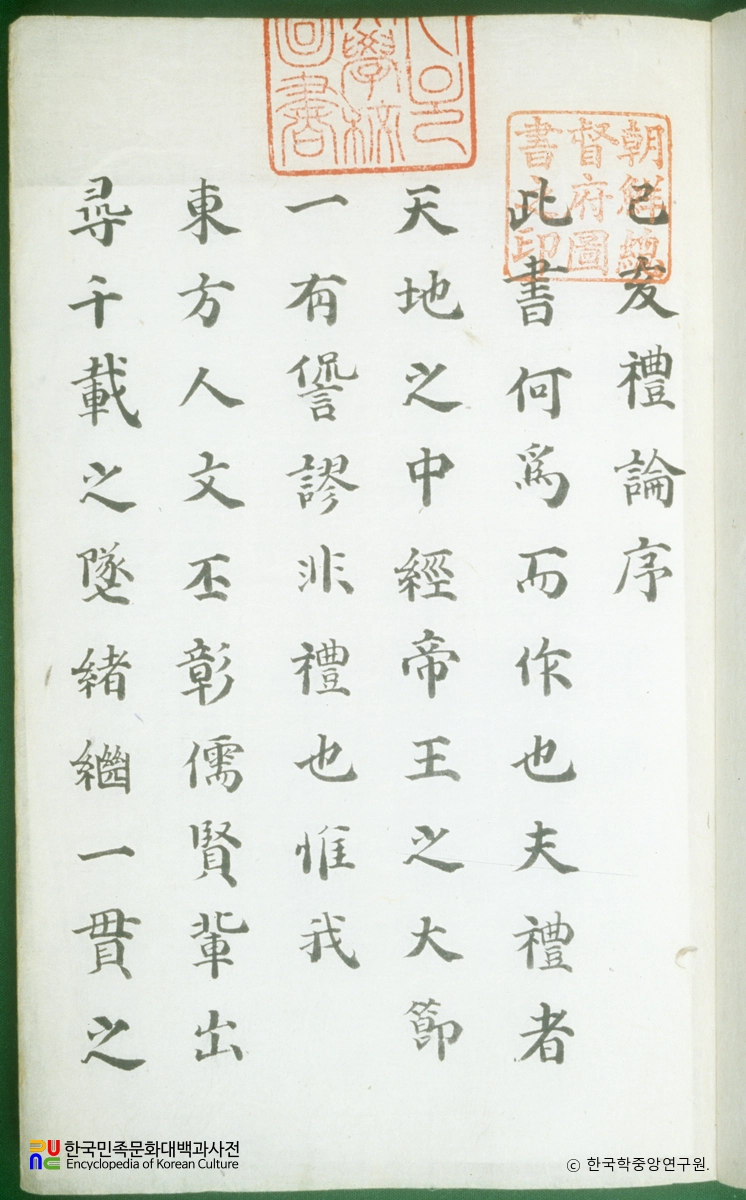 朝鮮總
督府圖
書之印
學校
圖書
己亥禮論序
此書何爲而作也夫禮者
天地之中經帝王之大節
一有諐謬非禮也惟我
東方人文丕彰儒賢輩出
尋千載之墜緒繼一貫之
한국민족문화대백과사전
Encyclopedia of Korean Culture
© 한국학중앙연구원.